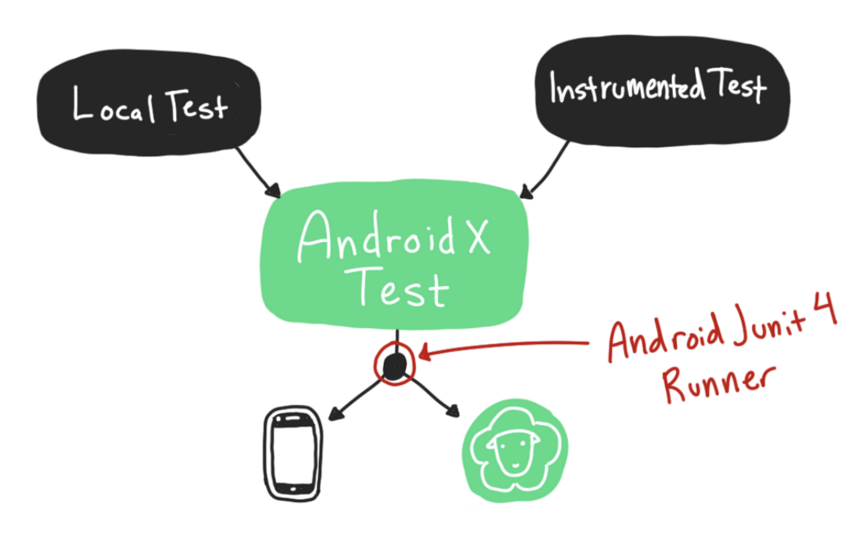 Local Test
Instrumented Test
Android X
Test
Android Junit 4
Runner